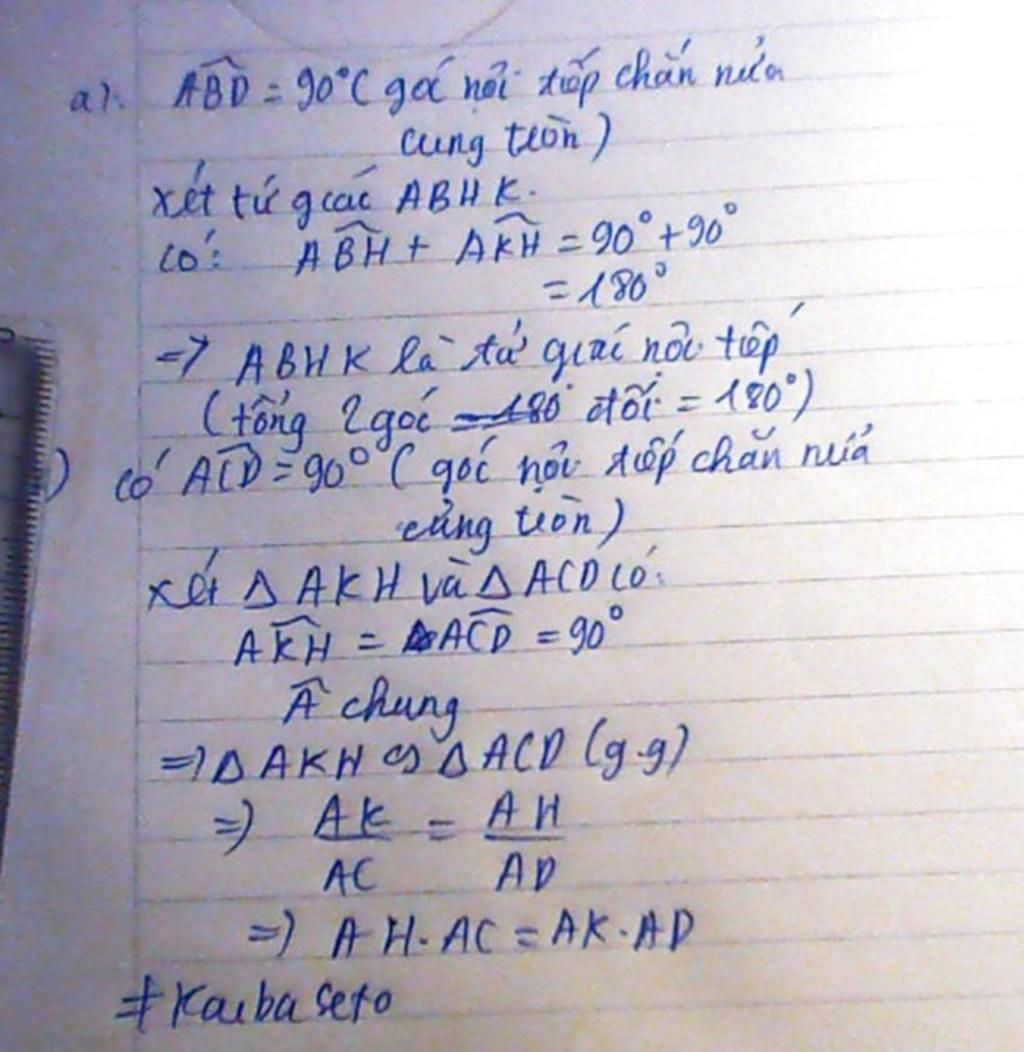 a). ABD = 90° (góc nội tiếp chắn nửa
cung tròn)
xét tứ giác ABHK.
có: ABH + AKH = 90° + 90°
= 180°
=> ABHK là tứ giác nội tiếp
(tổng 2 góc đối = 180°)
) có ACD = 90° (góc nội tiếp chắn nửa
cung tròn)
xét Δ AKH và Δ ACD có:
AKH = ACD = 90°
Â chung
=> Δ AKH ∽ Δ ACD (g.g)
=> AK/AC = AH/AD
=> AH.AC = AK.AD
# Kaiba seto